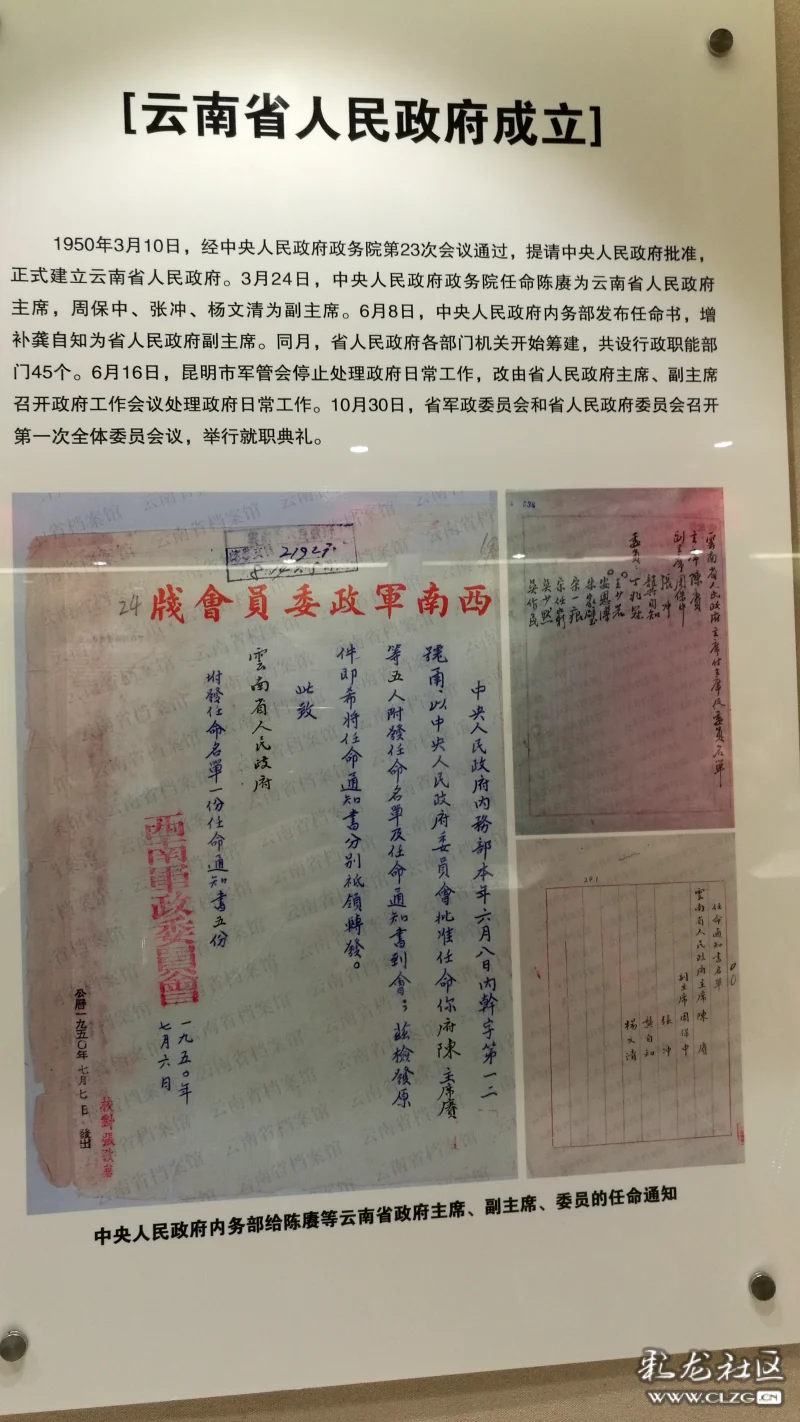 [云南省人民政府成立]
1950年3月10日，经中央人民政府政务院第23次会议通过，提请中央人民政府批准，
正式建立云南省人民政府。3月24日，中央人民政府政务院任命陈赓为云南省人民政府
主席，周保中、张冲、杨文清为副主席。6月8日，中央人民政府内务部发布任命书，增
补龚自知为省人民政府副主席。同月，省人民政府各部门机关开始筹建，共设行政职能部
门45个。6月16日，昆明市军管会停止处理政府日常工作，改由省人民政府主席、副主席
召开政府工作会议处理政府日常工作。10月30日，省军政委员会和省人民政府委员会召开
第一次全体委员会议，举行就职典礼。
2192
24
西南軍政委員會牋
中央人民政府內務部本年六月八日內幹字第一二
號函：以中央人民政府委員會批准任命你府陳主席賡
等五人附發任命名單及任命通知書到會；茲檢發原
件即希將任命通知書分别祇領轉發。
此致
雲南省人民政府
附發任命名單一份任命通知書五份
一九五〇年
七月六日
公曆一九五〇年七月七日 發出
雲南省人民政府主席付主席及委員名單
主席陳賡
副主席周保中
張冲
龔自知
委員
任命通知書名單
雲南省人民政府主席陳賡
副主席周保中
張冲
龔自知
楊文清
中央人民政府内务部给陈赓等云南省政府主席、副主席、委员的任命通知
彩龙社区
WWW.CLZG.CN